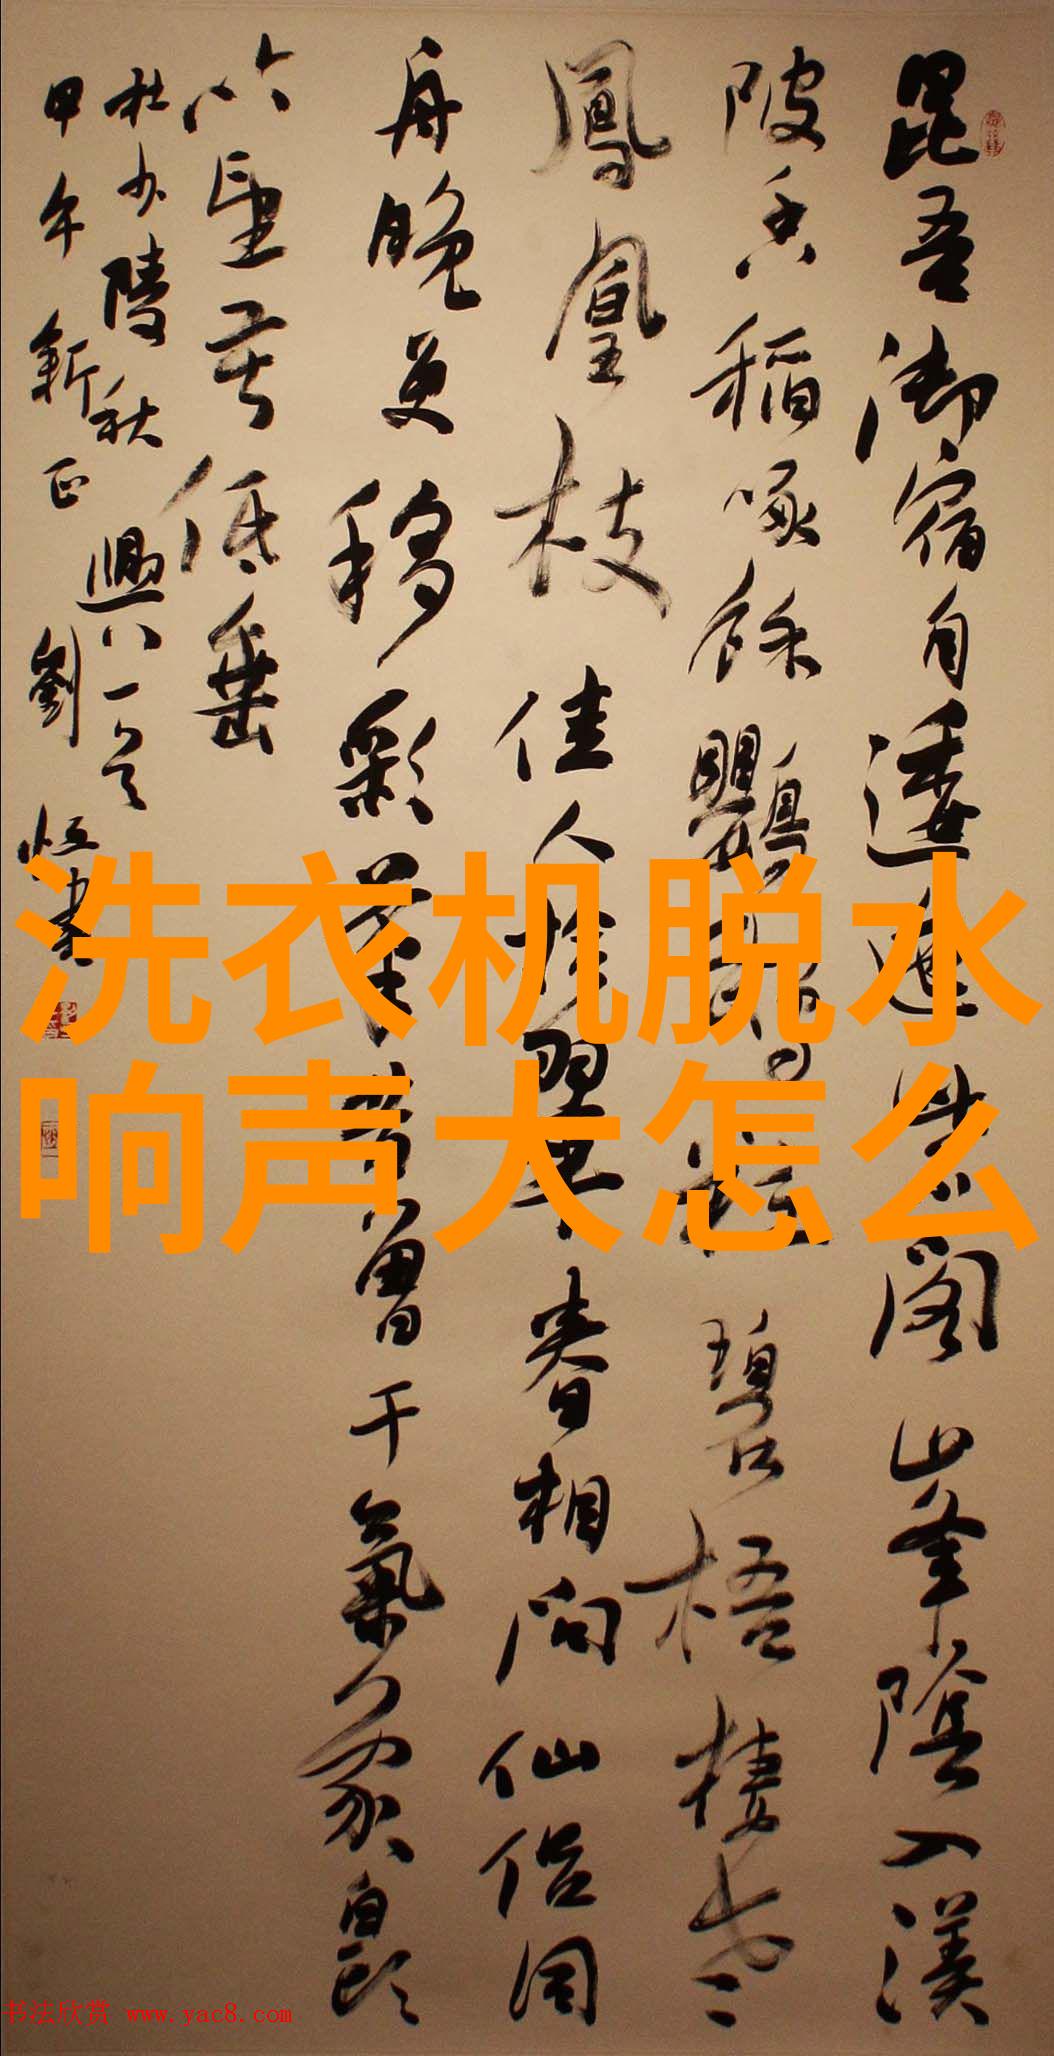 昆吾御宿自逶迤紫閣峯陰入渼
陂香稻啄餘鸚鵡粒碧梧棲老
鳳凰枝佳人拾翠春相問仙侶同
舟晚更移彩筆昔曾干氣象白頭
吟望苦低垂
杜少陵秋興八一首
甲午新正劉恒書
洗衣机脱水
响声大怎么
书法欣赏 www.yac8.com